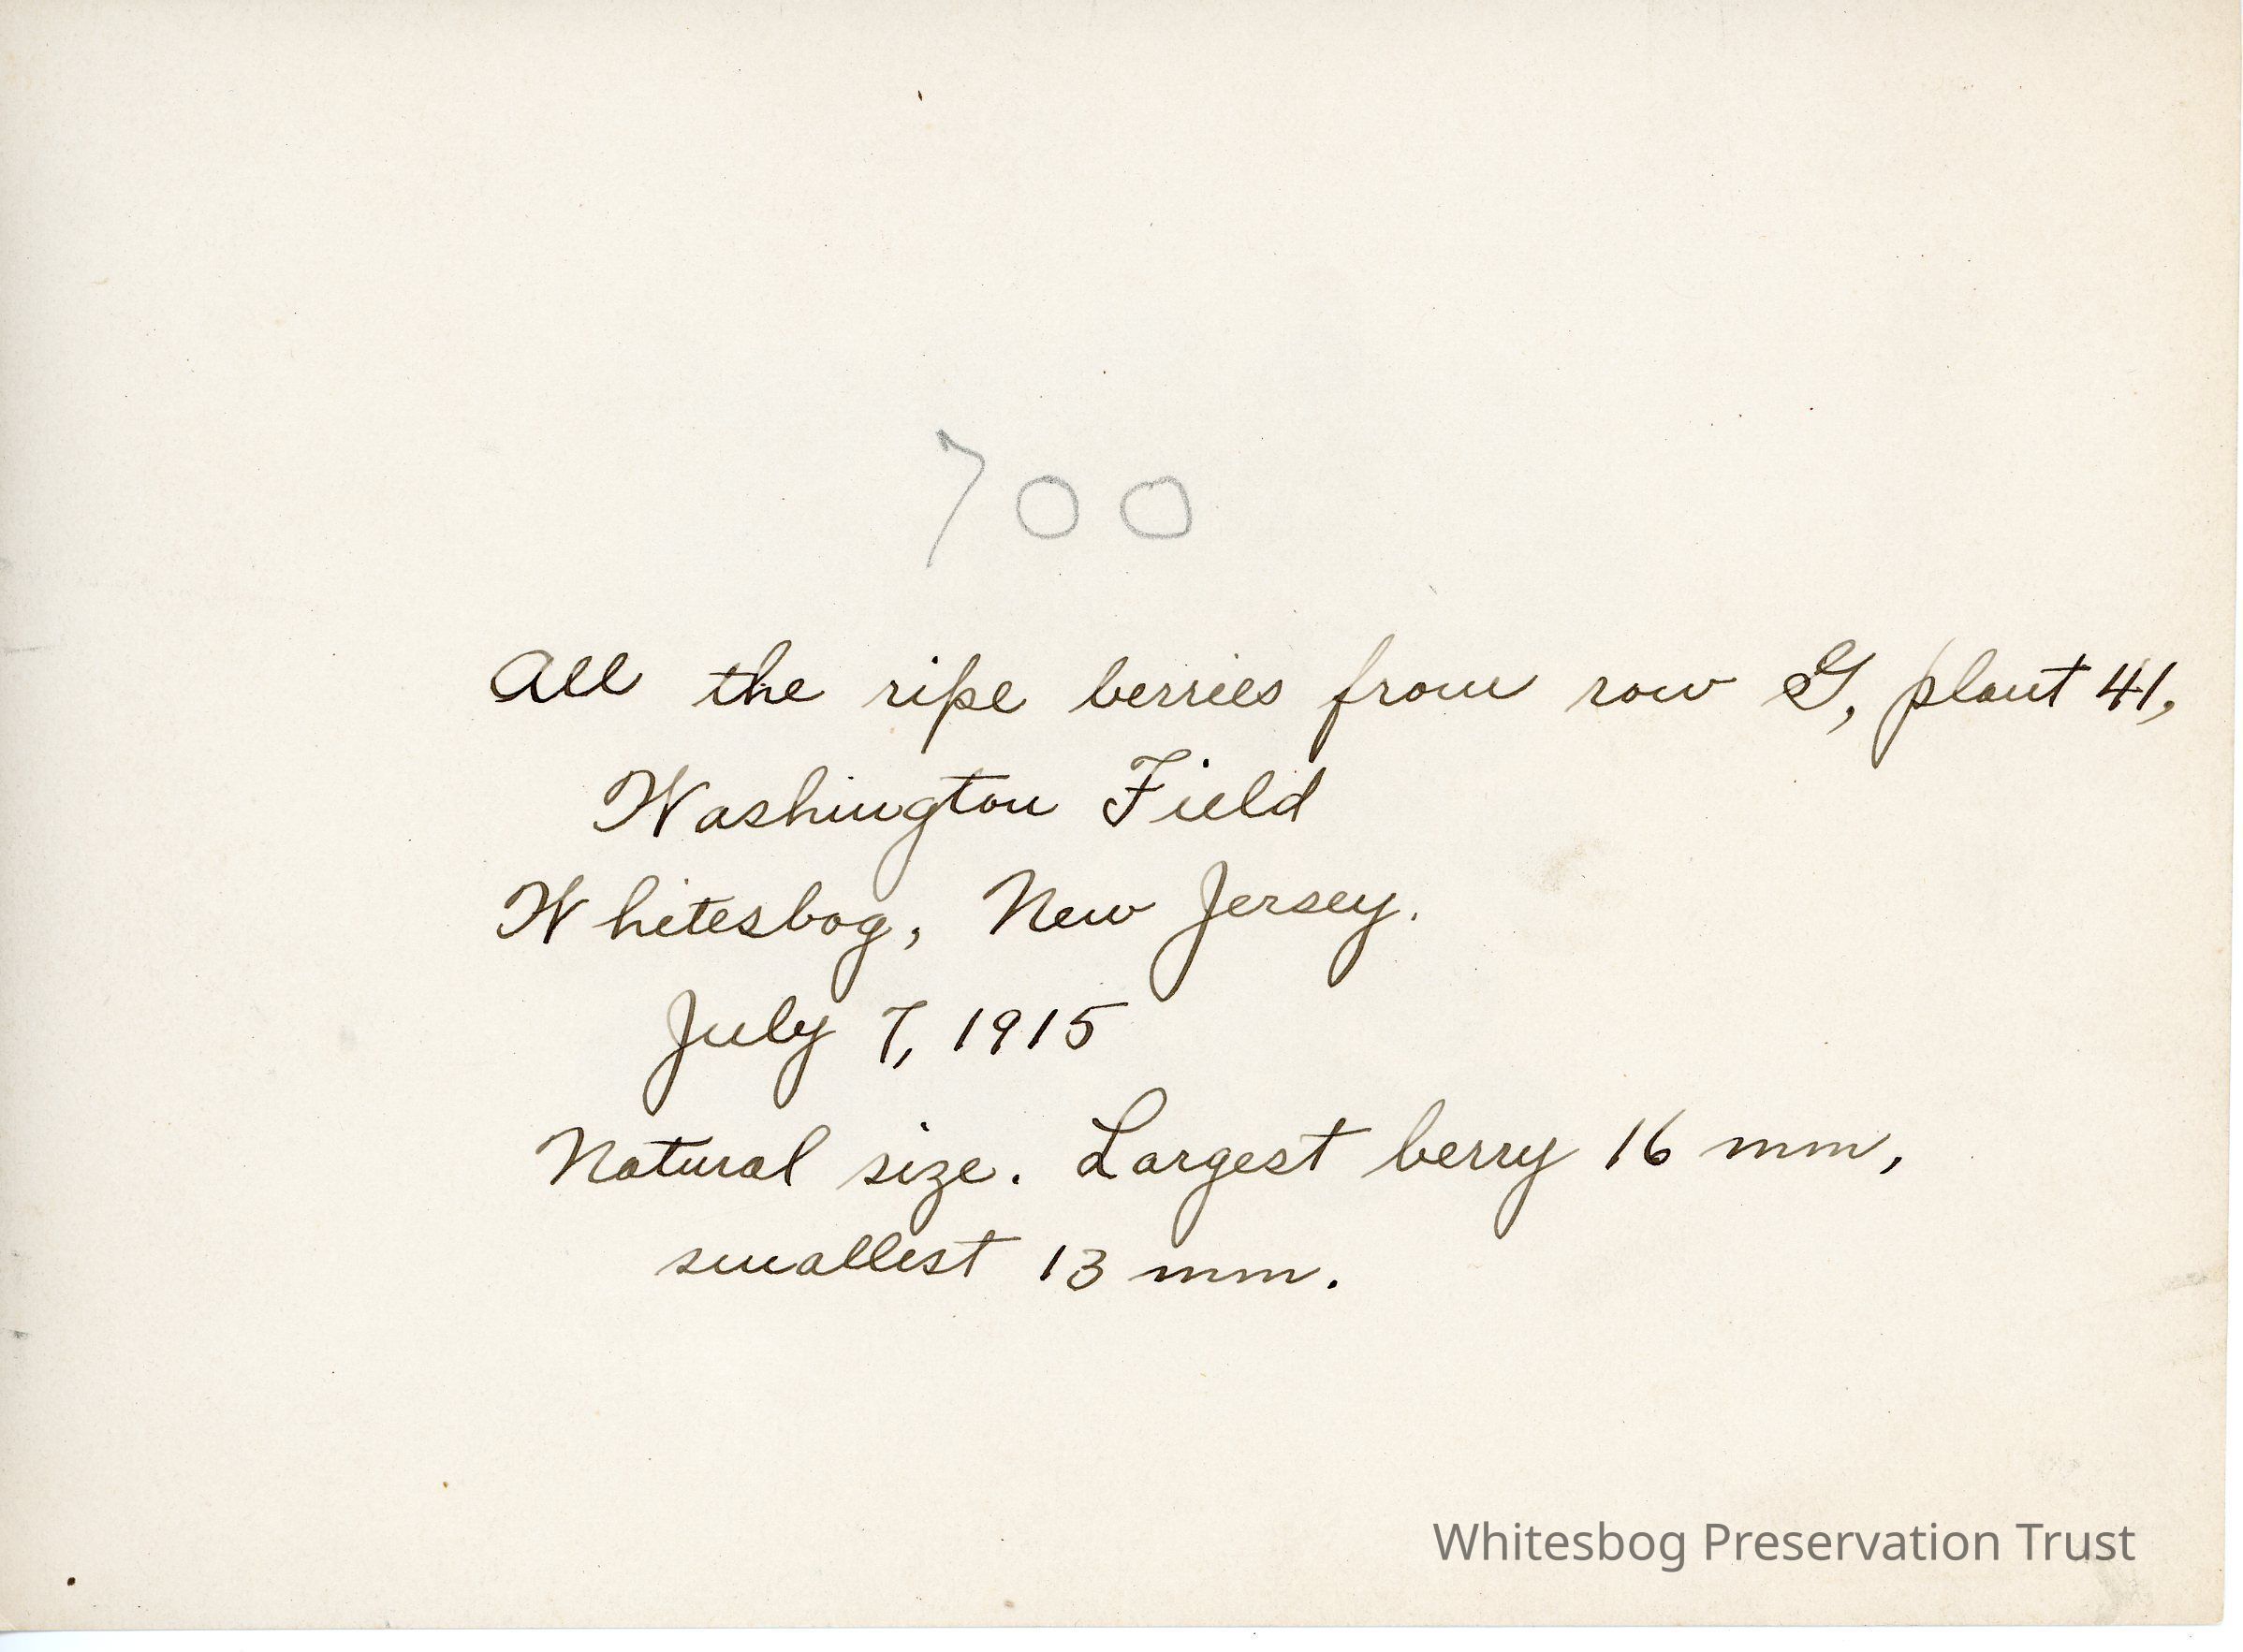 700
All the ripe berries from row G, plant 41,
Washington Field
Whitesbog, New Jersey.
July 7, 1915
Natural size. Largest berry 16 mm,
smallest 13 mm.
Whitesbog Preservation Trust